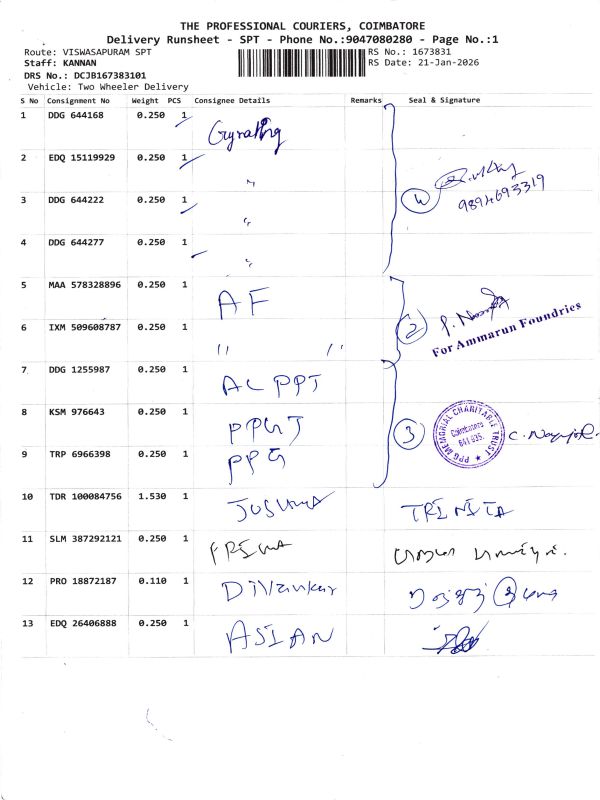 THE PROFESSIONAL COURIERS, COIMBATORE
Delivery Runsheet - SPT - Phone No.:9047080280 - Page No.:1
Route: VISWASAPURAM SPT
RS No.: 1673831
Staff: KANNAN
RS Date: 21-Jan-2026
DRS No.: DCJB167383101
Vehicle: Two Wheeler Delivery
S No Consignment No Weight PCS Consignee Details Remarks Seal & Signature
1 DDG 644168 0.250 1
2 EDQ 15119929 0.250 1 "
3 DDG 644222 0.250 1 "
4 DDG 644277 0.250 1 "
4
9894693319
5 MAA 578328896 0.250 1 AF
6 IXM 509608787 0.250 1 " "
2
For Ammarun Foundries
7 DDG 1255987 0.250 1 ACPPJ
8 KSM 976643 0.250 1 PPGJ
9 TRP 6966398 0.250 1 PPG
3
PPG MEMORIAL CHARITABLE TRUST
Coimbatore
641 035.
10 TDR 100084756 1.530 1 JOSUVA TRINITA
11 SLM 387292121 0.250 1
12 PRO 18872187 0.110 1
13 EDQ 26406888 0.250 1 ASIAN